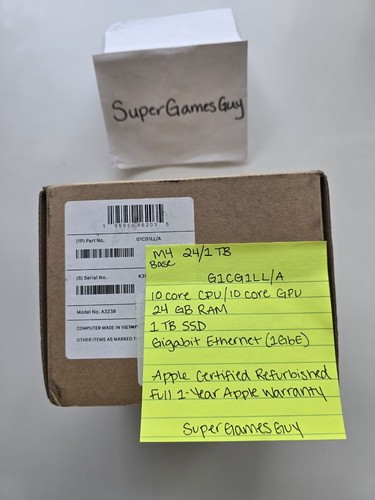 SuperGamesGuy
(1P) Part No. G1CG1LL/A
(S) Serial No.
Model No. A3238
COMPUTER MADE IN VIETNAM
OTHER ITEMS AS MARKED
M4 24/1 TB
Base
G1CG1LL/A
10 core CPU/10 core GPU
24 GB RAM
1 TB SSD
Gigabit Ethernet (1GbE)
Apple Certified Refurbished
Full 1-Year Apple Warranty
SuperGamesGuy